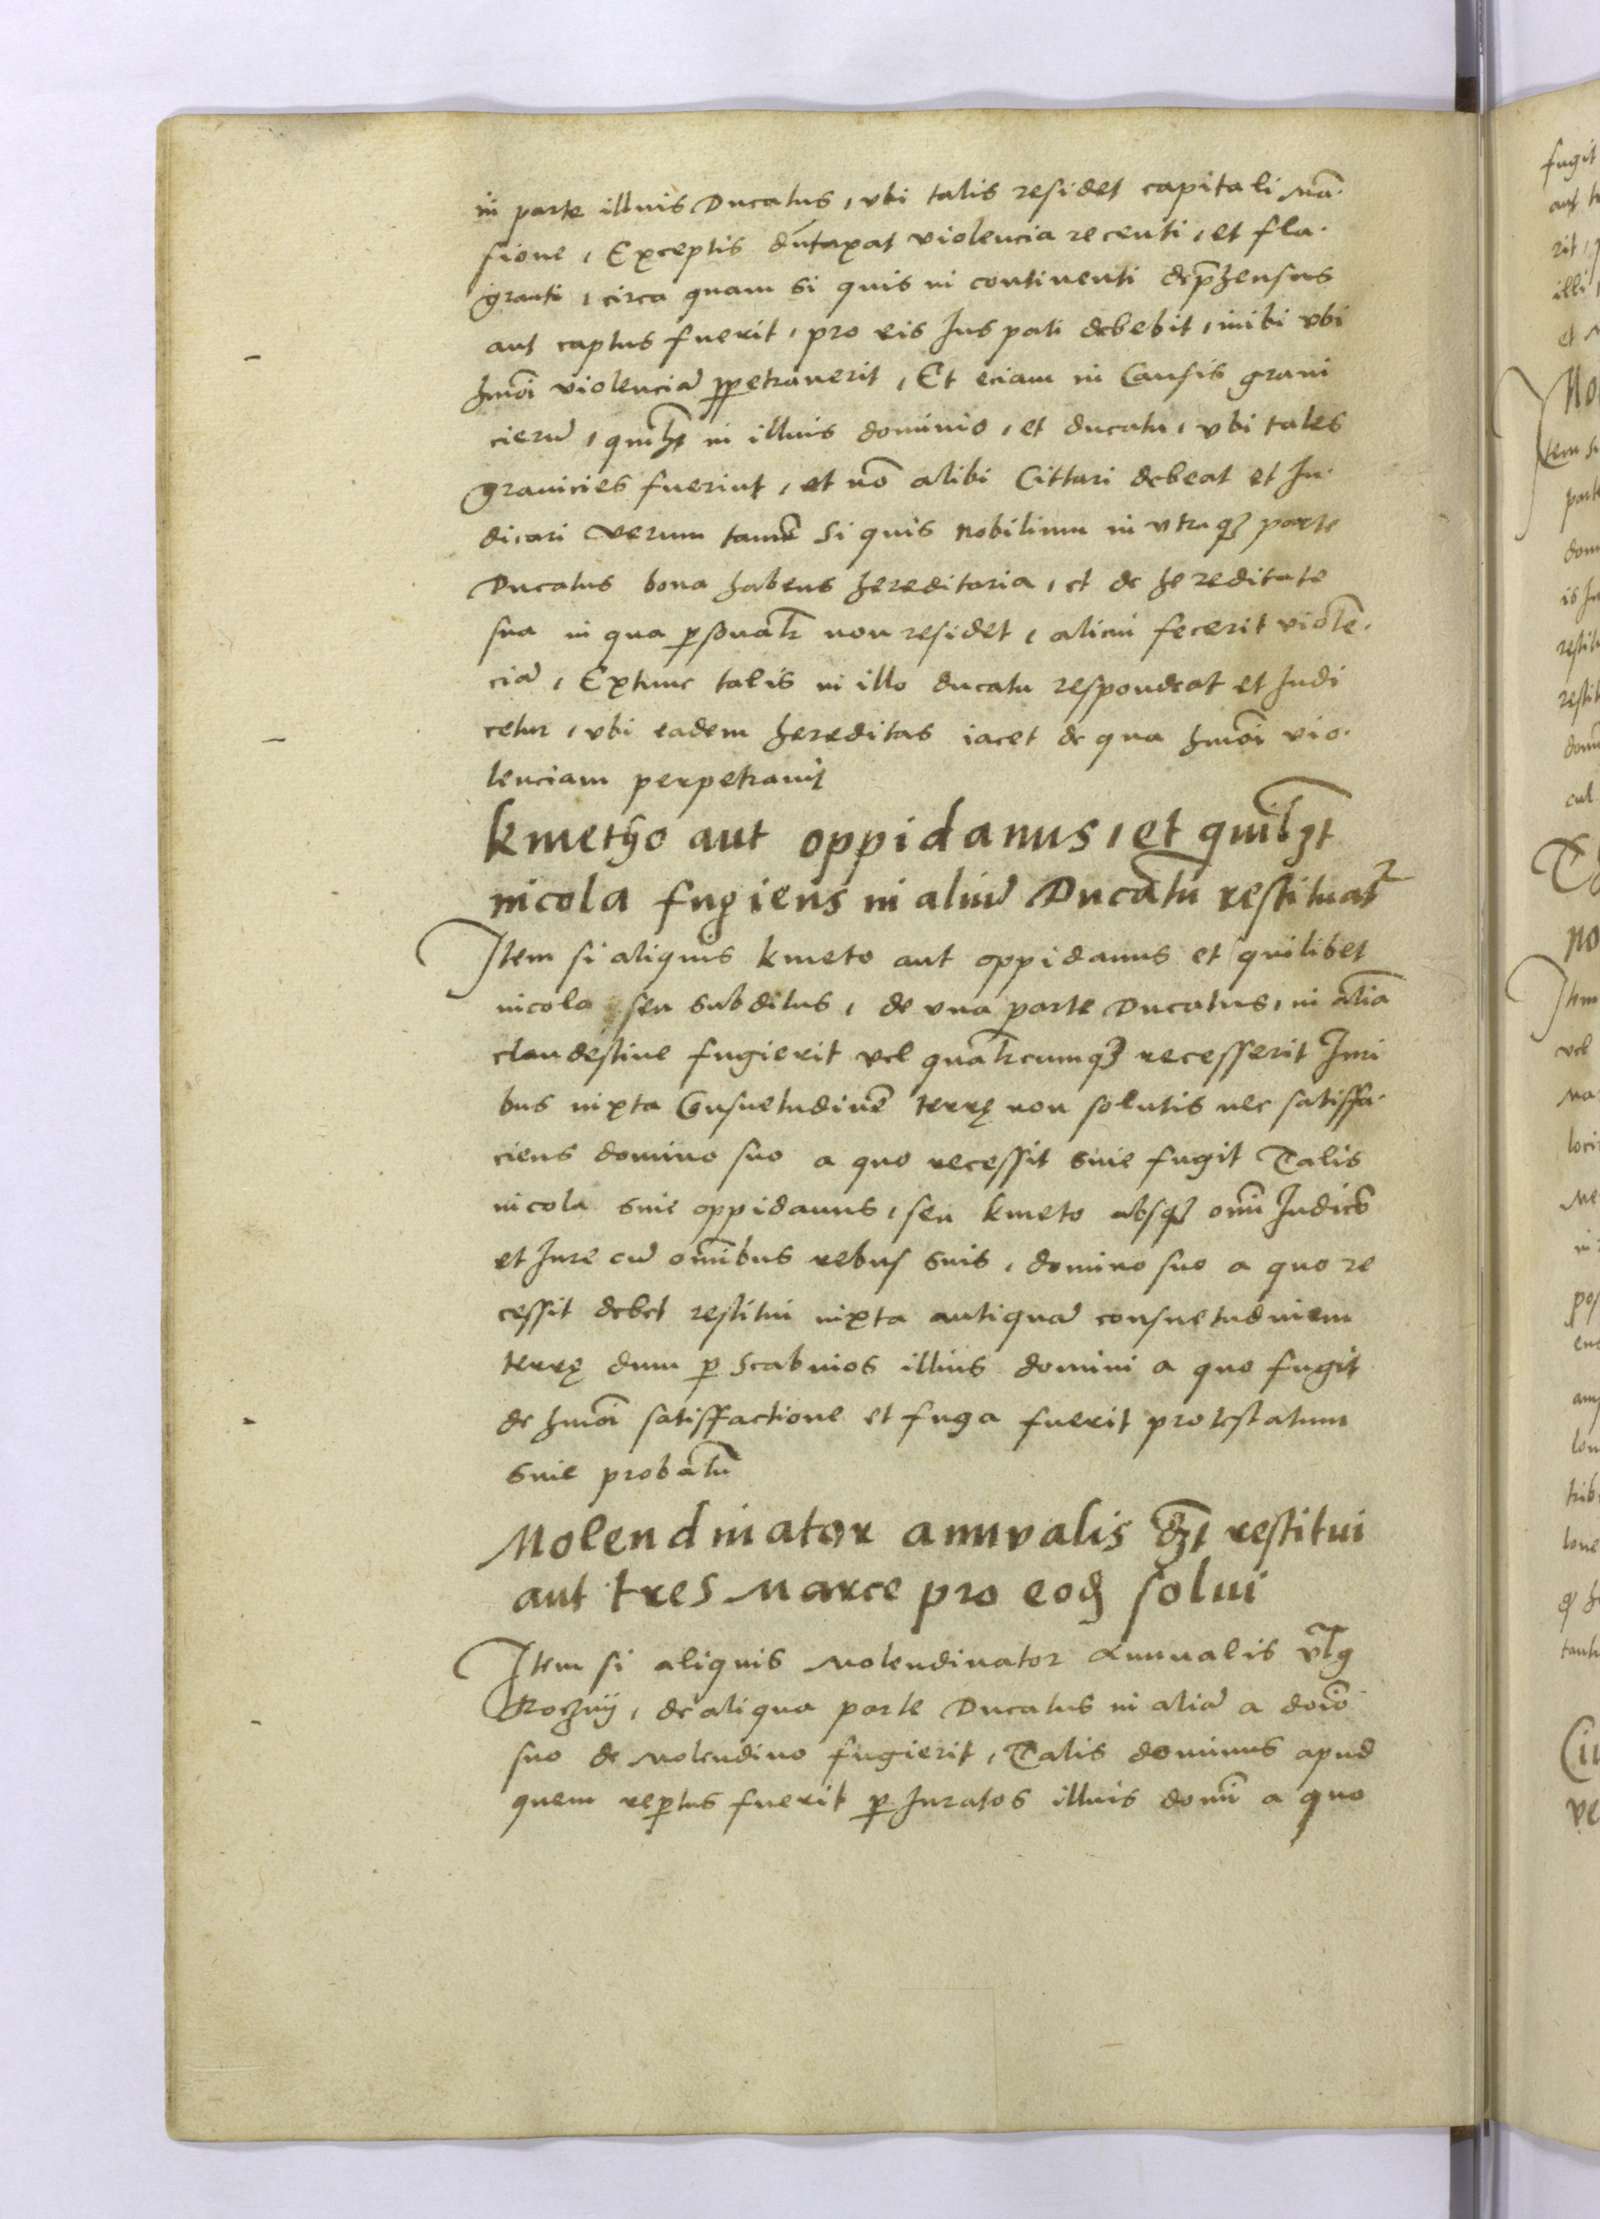 in parte illius Ducatus, vbi talis residet capitali mā-
sione, Exceptis dūtaxat violencia recenti, et fla-
granti, circa quam si quis in continenti dep̄hensus
aut captus fuerit, pro eis Jus pati debebit, inibi vbi
hmōi violenciā ꝑpetrauerit, Et eciam in Causis graui
cierū, quilꝫt in illius dominio, et ducatu, vbi tales
grauicies fuerint, et nō alibi Cittari debeat et Ju-
dicari Verum tamē Si quis Nobilium in vtraqꝫ parte
Ducatus bona habens hereditaria, et de hereditate
sua in qua ꝑsonalr̄ non residet, alicui fecerit violē-
ciā, Extunc talis in illo ducatu respondeat et Judi
cetur, vbi eadem hereditas iacet de qua hmōi vio-
lenciam perpetrauit
kmetho aut oppidanus, et quilꝫt
incola fugiens in aliū Ducatū restituat᷑
Item si aliquis kmeto aut oppidanus et quilibet
incola seu subditus, de vna parte Ducatus, in aliā
clandestine fugierit vel qualr̄cumqꝫ recesserit Juri
bus iuxta Consuetudinē terrę non solutis nec satisffa-
ciens domino suo a quo recessit siue fugit Talis
incola siue oppidanus, seu kmeto absqꝫ om̄i Judicio
et Jure cū om̄ibus rebus suis, domino suo a quo re
cessit debet restitui iuxta antiquā consuetudinem
terrę dum ꝑ Scabinos illius domini a quo fugit
de hmōi satisffactione et fuga fuerit protestatum
siue probatū
Molendinator annualis dꝫt restitui
aut tres Marce pro eodē solui
Item si aliquis Molendinator Annualis vlg
Roczny, de aliqua parte Ducatus in aliā a dōio
suo de Molendino fugierit, Talis dominus apud
quem reꝑtus fuerit ꝑ Juratos illius domī a quo